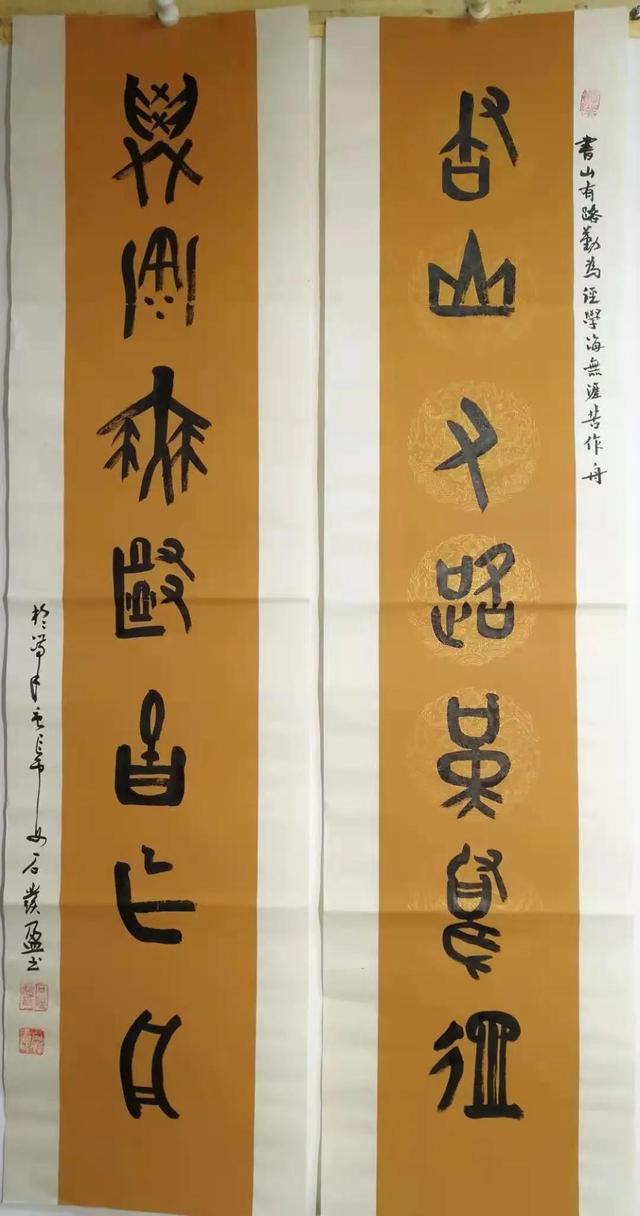 書山有路勤為徑學海無涯苦作舟
書山有路勤為徑
學海無涯苦作舟